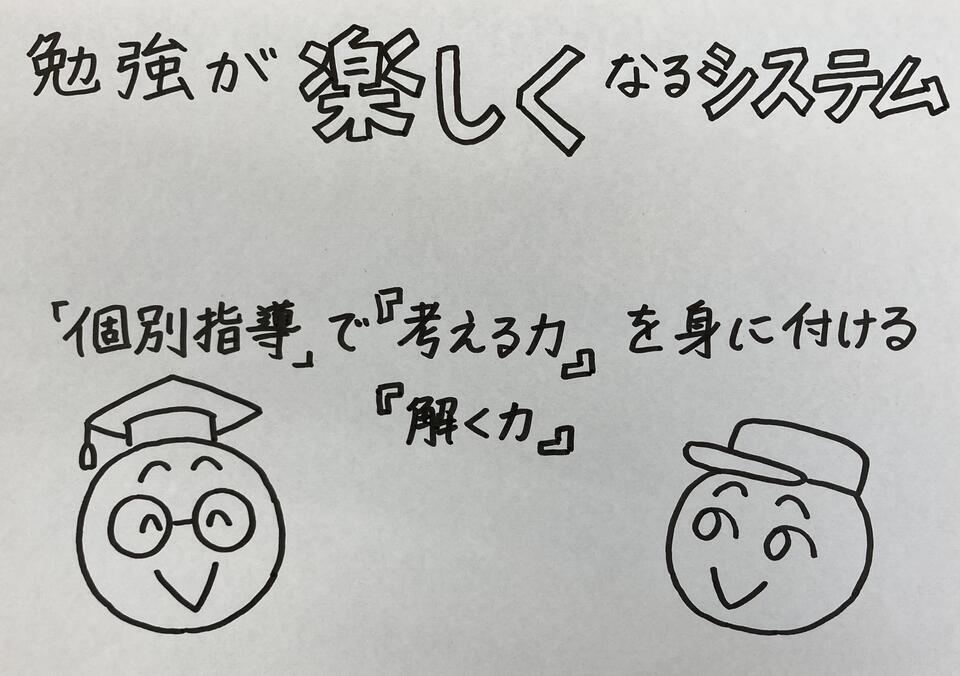 勉強が楽しくなるシステム
「個別指導」で『考える力』を身に付ける
『解く力』